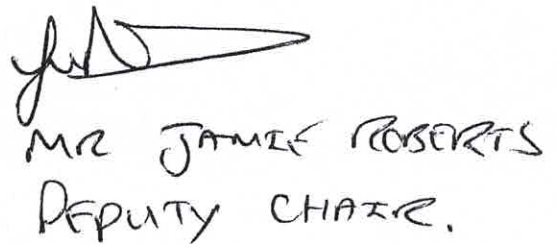 MR JAMIE ROBERTS
DEPUTY CHAIR.